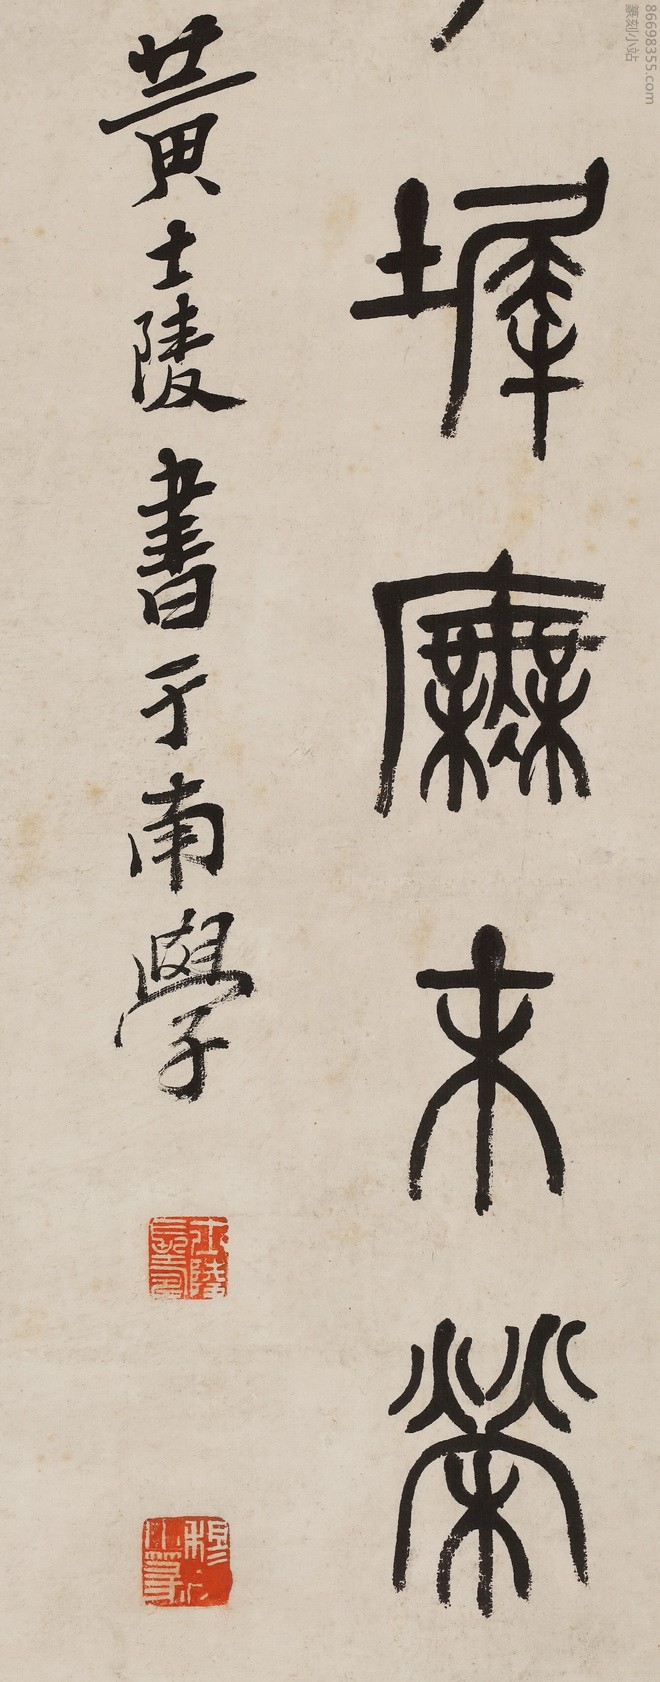 墀靡末榮
黃士陵書于南學
86698355.com
篆刻小站